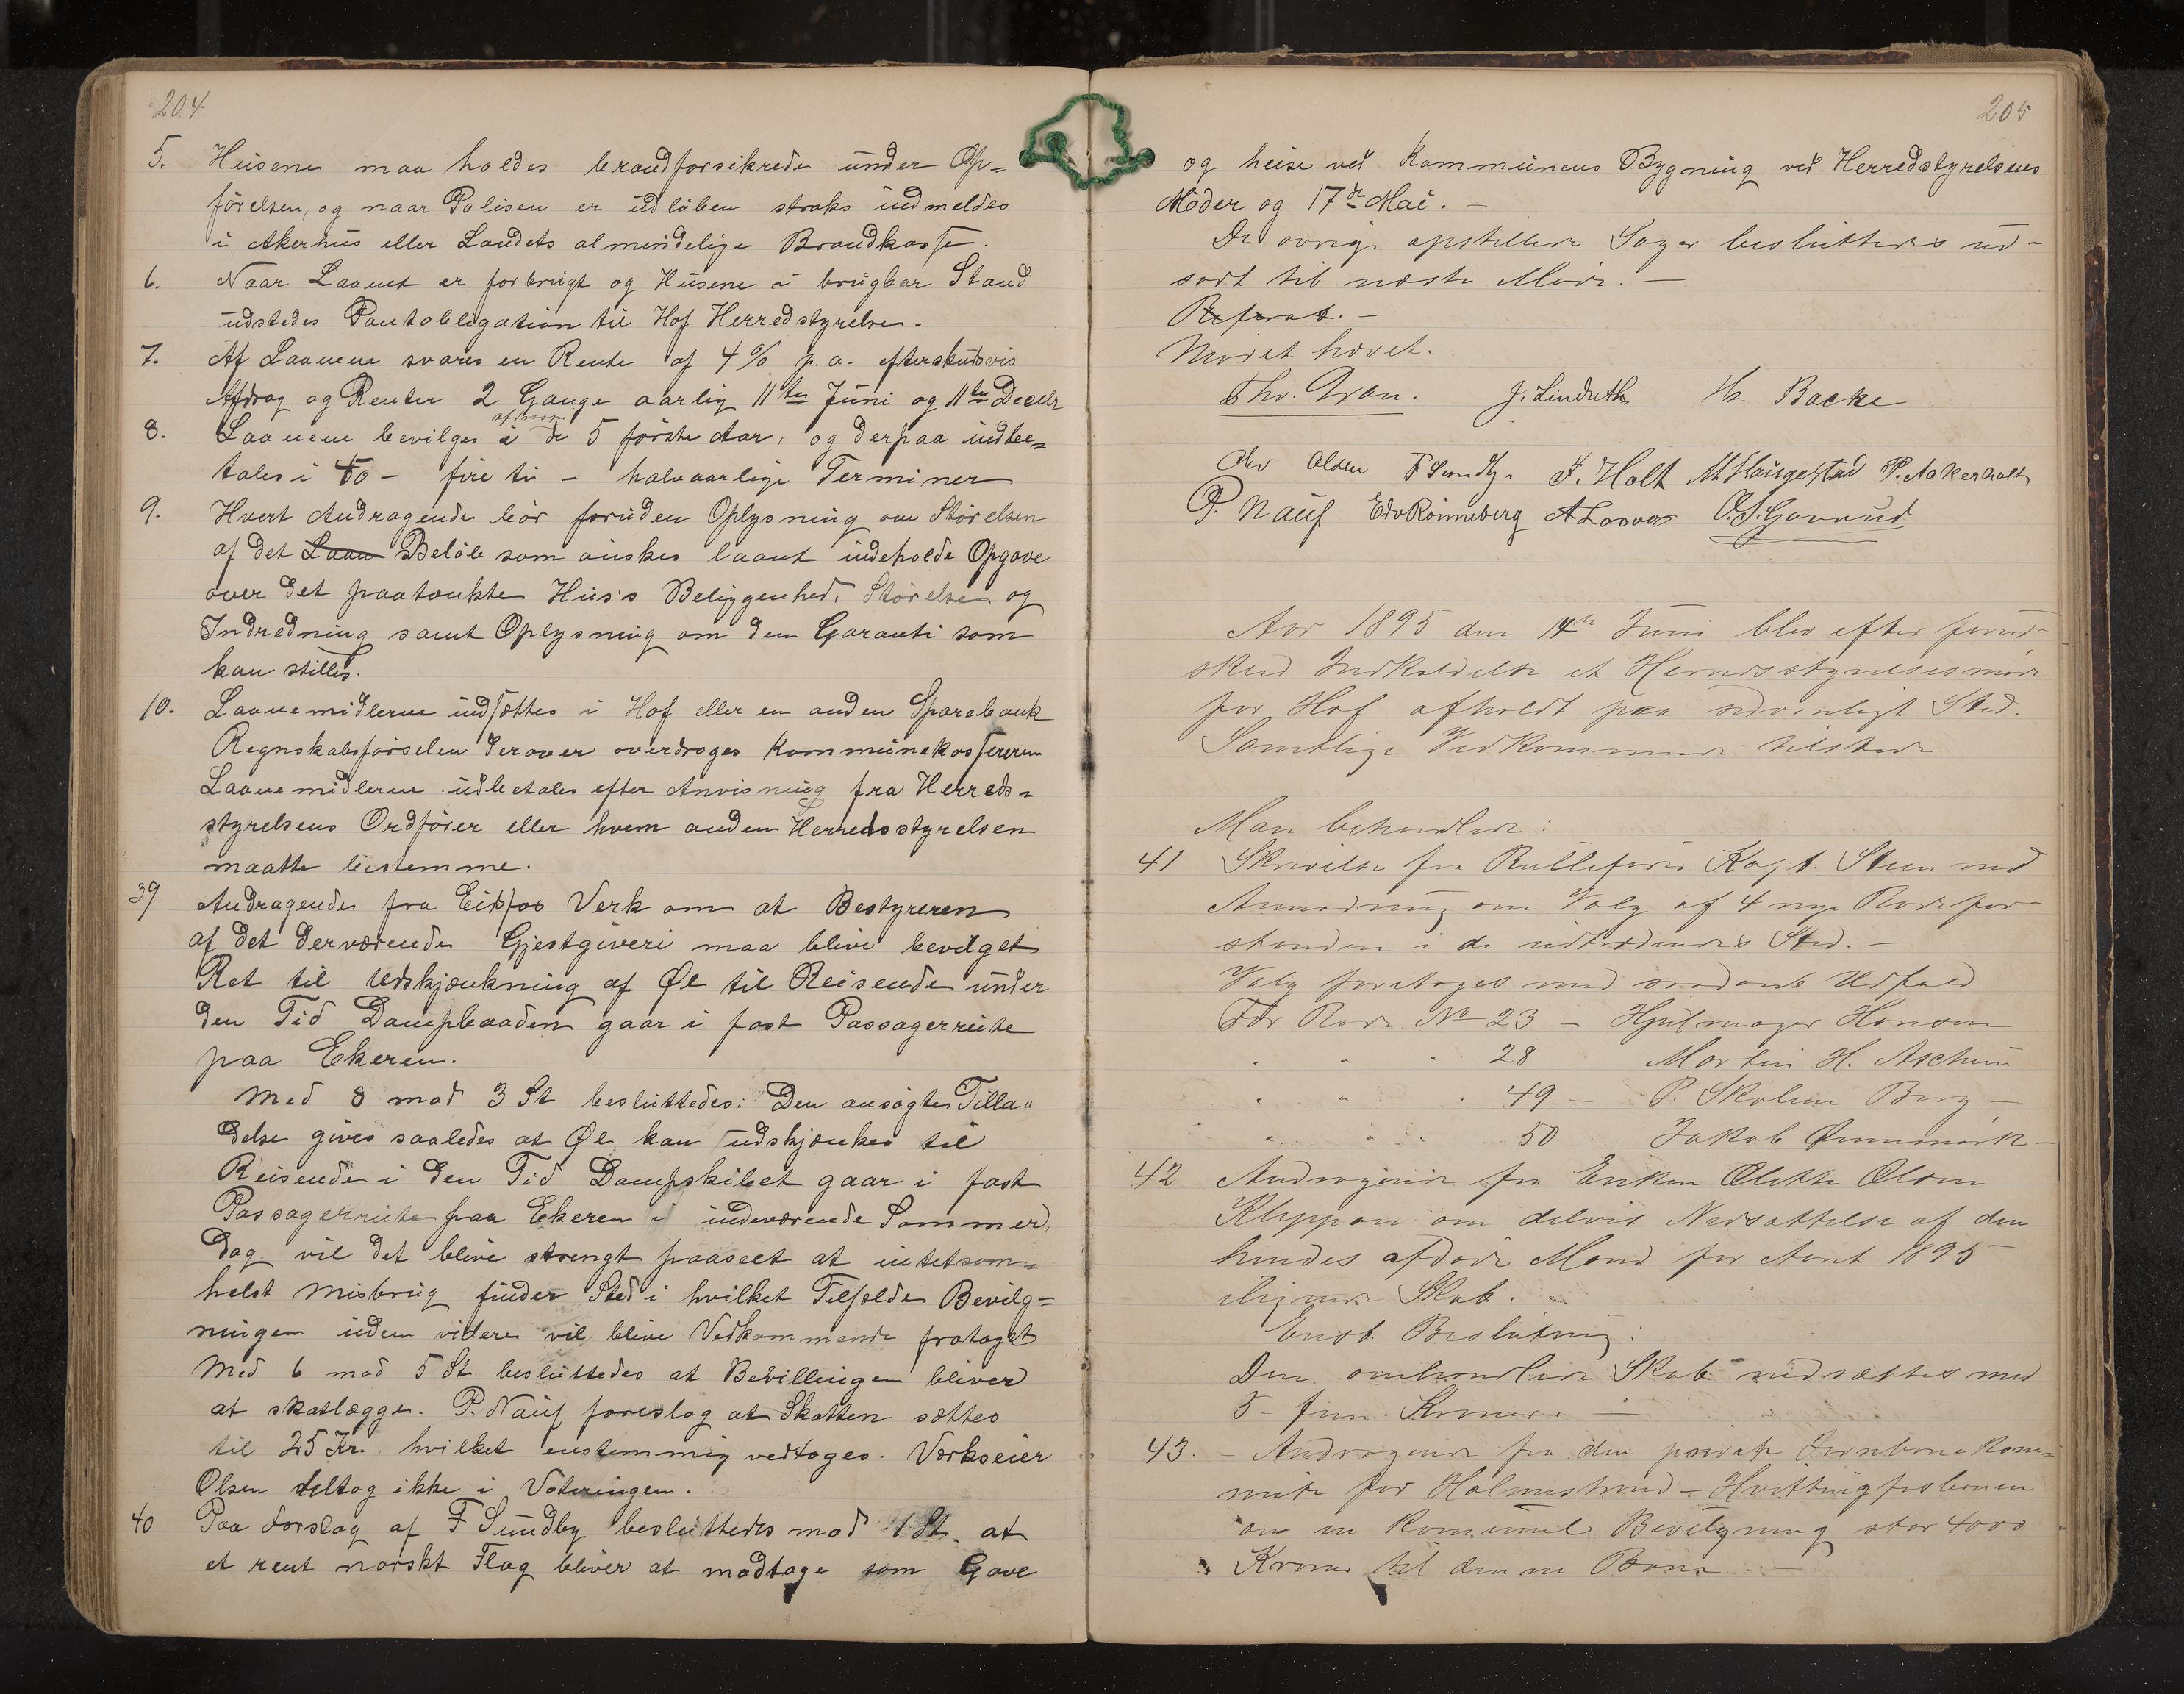 204
5. Husene maa holdes brandforsikrede under Op=
førelsen, og naar Polisen er udløben straks indmeldes
i Akerhus eller Landets almindelige Brandkasse.
6. Naar Laanet er forbrugt og Husene i brugbar Stand
udstedes Pantobligation til Hof Herredstyrelse.
7. Af Laanene svares en Rente af 4% p.a. efterskudsvis
Afdrag og Renter 2 Gange aarlig 11te Juni og 11te Decebr
8. Laanene bevilges afdragsfri i de 5 første Aar, og derpaa indbe=
tales i 40 - fire ti - halvaarlige Terminer
9. Hvert Andragende bør foruden Oplysning om Størelsen
af det Laan Beløb som ønskes laant indeholde Opgave
over det paatænkte Hus's Beliggenhed, Størelse og
Indredning samt Oplysning om den Garanti som
kan stilles.
10. Laanemidlerne indsættes i Hof eller en anden Sparebank
Regnskabsførselen derover overdrages Kommunekassereren
Laanemidlerne udbetales efter Anvisning fra Herreds=
styrelsens Ordfører eller hvem anden Herredsstyrelsen
maatte bestemme.
39 Andragende fra Eidsfos Verk om at Bestyreren
af det derværende Gjestgiveri maa blive bevilget
Ret til Udskjænkning af Øl til Reisende under
den Tid Dampbaaden gaar i fast Passagerrute
paa Ekeren.
Med 8 mod 3 St besluttedes: Den ansøgte Tilla=
delse gives saaledes at Øl kan udskjænkes til
Reisende i den Tid Dampskibet gaar i fast
Passagerrute paa Ekeren i indeværende Sommer,
Dog vil det blive strengt paaseet at intetsom=
helst Misbrug finder Sted i hvilket Tilfælde Bevilg=
ningen uden videre vil blive Vedkommende frataget
Med 6 mod 5 St besluttedes at Bevillingen bliver
at skatlægge. P. Nauf foreslog at Skatten sættes
til 25 Kr. hvilket enstemmig vedtoges. Værkseier
Olsen deltog ikke i Voteringen.
40 Paa Forslag af F Sundby besluttedes mod 1 St. at
et rent norskt Flag bliver at modtage som Gave
205
og heise ved Kommunens Bygning ved Herredstyrelsens
Møder og 17de Mai. -
De øvrige opstillede Sager besluttedes ud-
sadt til næste Møde. -
Referat. -
Mødet hævet.
Chr. Gran. J. Lindseth Hr. Backe
Olsen F Sundby. F. Holt M. Haugestad P. Aakerholt
P. Nauf Edv Rønneberg O. S. Gavrud
Aar 1895 den 14de Juni blev efter forud-
skeed Indkaldelse et Herredsstyrelsesmøde
for Hof afholdt paa sedvanligt Sted.
Samtlige Vedkommende tilstede
Man behandlede:
41 Skrivelse fra Rullefører Kapt. Steen med
Anmodning om Valg af 4 nye Rodefor-
standere i de udtrædendes Sted. -
Valg foretoges med saadant Udfald
For Rode No 23 - Hjulmager Hansen
" " " 28 Martin H. Aschim
" " " 49 - P. Skolem Berg -
" " " 50 Jakob
42 Andragende fra Enken Olette Olsen
Kleppan om delvis Nedsættelse af den
hendes afdøde Mand for Aaret 1895
ilignede Skat.
Enst. Beslutning:
Den omhandlede Skat nedsættes med
5 - fem - Kroner. -
43. - Andragende fra den private Jernbanekom=
mite for Holmestrand - Hvittingfosbanen
om en Komunal Bevilgning stor 4000
Kroner til denne Bane. -